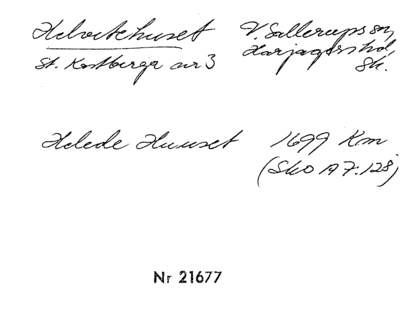 Helvetehuset V. Sallerups sn,
St. Kastberga nr 3 Harjagers hd,
Sk.
Helede Huuset 1699 Km
(SkO A 7:128)
Nr 21677